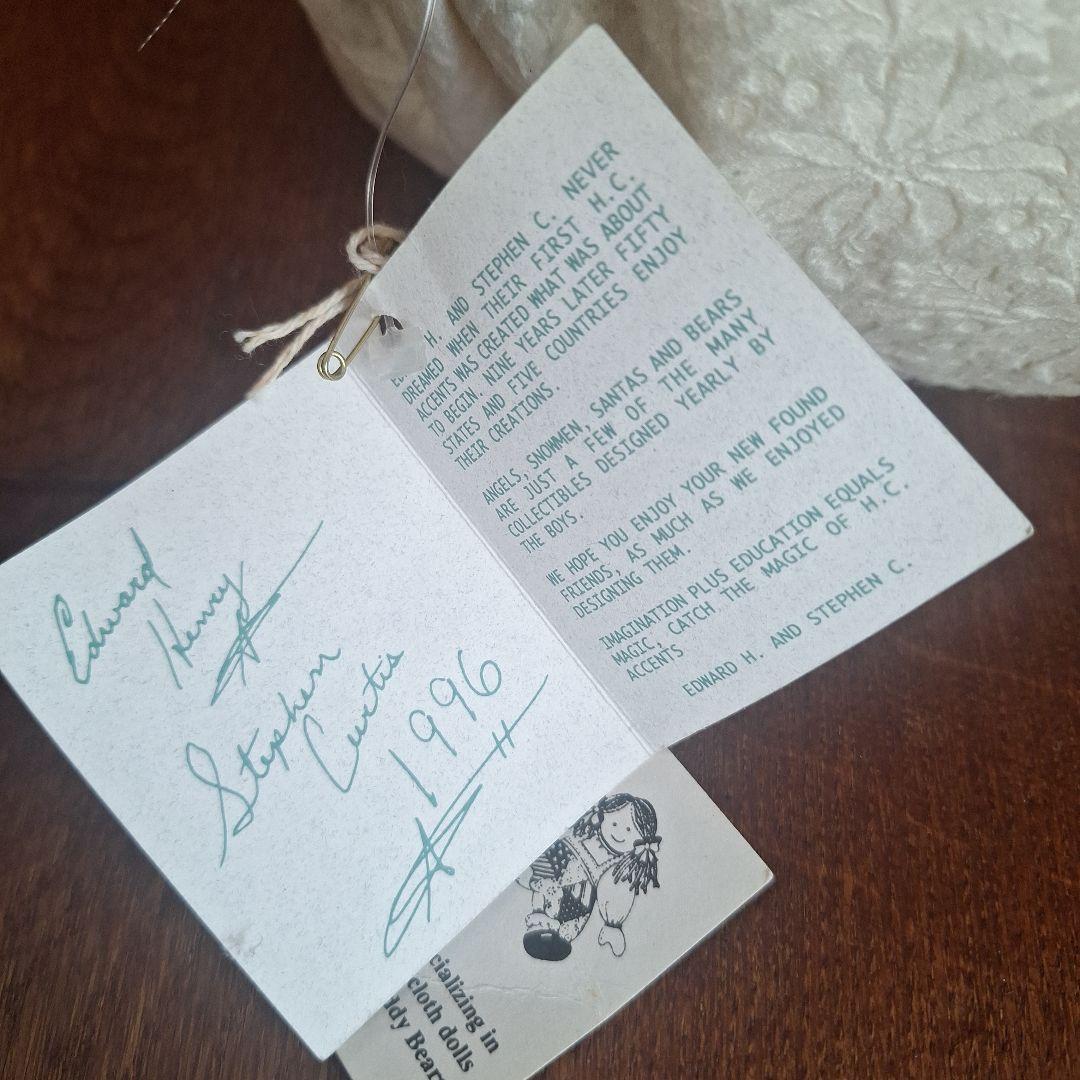 Edward
Henry
Stephen
Curtis
1996
H. AND STEPHEN C. NEVER
DREAMED WHEN THEIR FIRST H.C.
ACCENTS WAS CREATED WHAT WAS ABOUT
TO BEGIN. NINE YEARS LATER FIFTY
STATES AND FIVE COUNTRIES ENJOY
THEIR CREATIONS.
ANGELS, SNOWMEN, SANTAS AND BEARS
ARE JUST A FEW OF THE MANY
COLLECTIBLES DESIGNED YEARLY BY
THE BOYS.
WE HOPE YOU ENJOY YOUR NEW FOUND
FRIENDS, AS MUCH AS WE ENJOYED
DESIGNING THEM.
IMAGINATION PLUS EDUCATION EQUALS
MAGIC, CATCH THE MAGIC OF H.C.
ACCENTS
EDWARD H. AND STEPHEN C.
cializing in
cloth dolls
ddy Bear